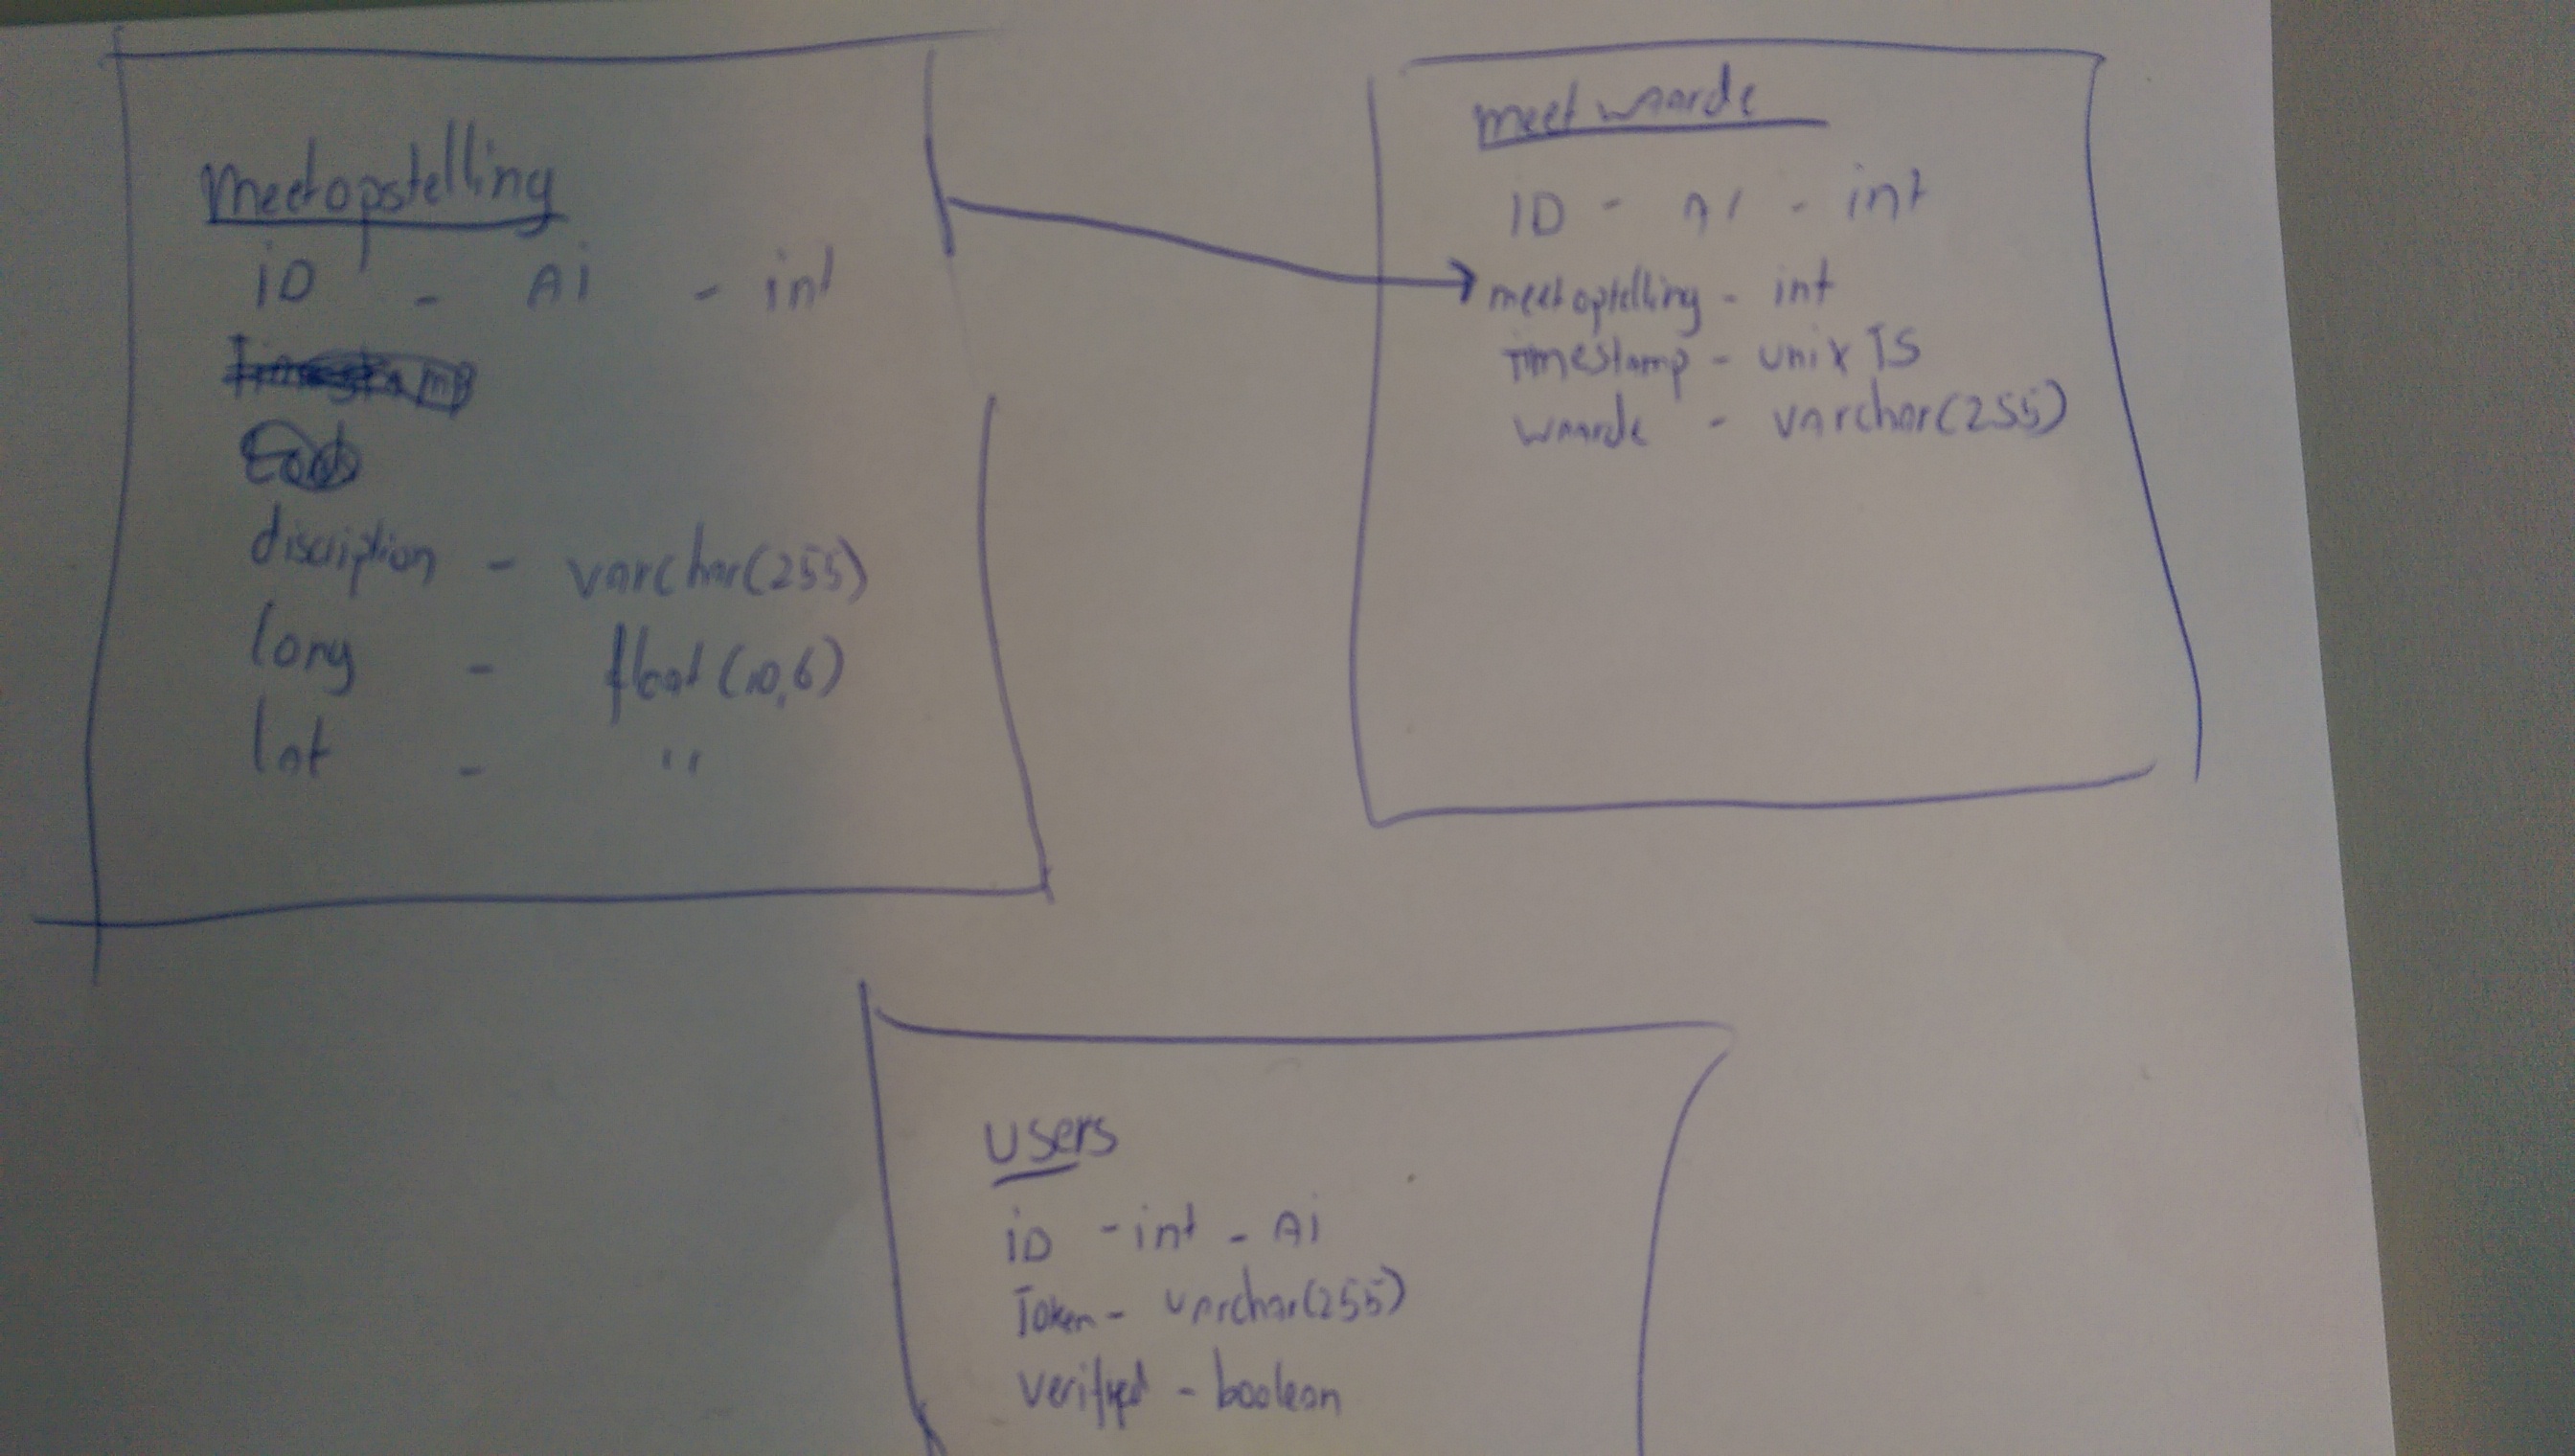 meetopstelling
iD - Ai - int
discription - varchar(255)
long - float(10,6)
lat - "
meetwaarde
ID - AI - int
meetopstelling - int
Timestamp - unix TS
waarde - varchar(255)
users
iD - int - Ai
Token - varchar(255)
verified - boolean